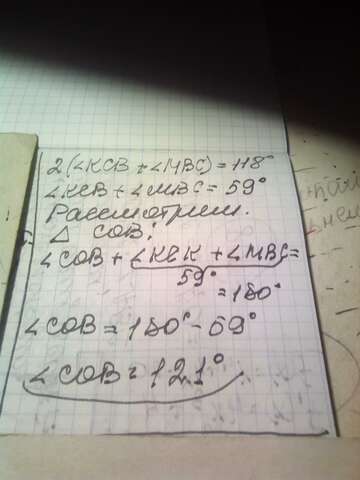 2(∠KCB + ∠MBC) = 118°
∠KCB + ∠MBC = 59°
Рассмотрим
△ COB:
∠COB + ∠KCK + ∠MBC =
59°
= 180°
∠COB = 180° - 59°
∠COB = 121°